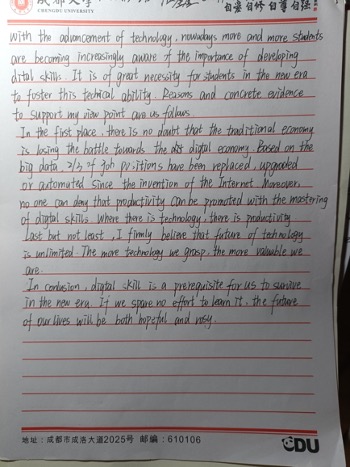 成都大学
CHENGDU UNIVERSITY
自信 自修 自尊 自强
with the advancement of technology, nowadays more and more students
are becoming increasingly aware of the importance of developing
dital skills. It is of great necessity for students in the new era
to foster this techical ability. Reasons and concrete evidence
to support my view point are us follows
In the first place, there is no doubt that the traditional economy
is losing the battle towards the digital economy. Based on the
big data, 2/3 of job positions have been replaced, upgraded
or automated since the invention of the Internet. Moreover,
no one can deny that productivity can be promoted with the mastering
of digital skills. Where there is technology, there is productivity
Last but not least, I firmly believe that future of technology
is unlimited. The more technology we grasp, the more valuable we
are.
In conlusion, digital skill is a prerequisite for us to survive
in the new era. If we spare no effort to learn it, the future
of our lives will be both hopeful and rosy.
地址：成都市成洛大道2025号 邮编：610106
CDU